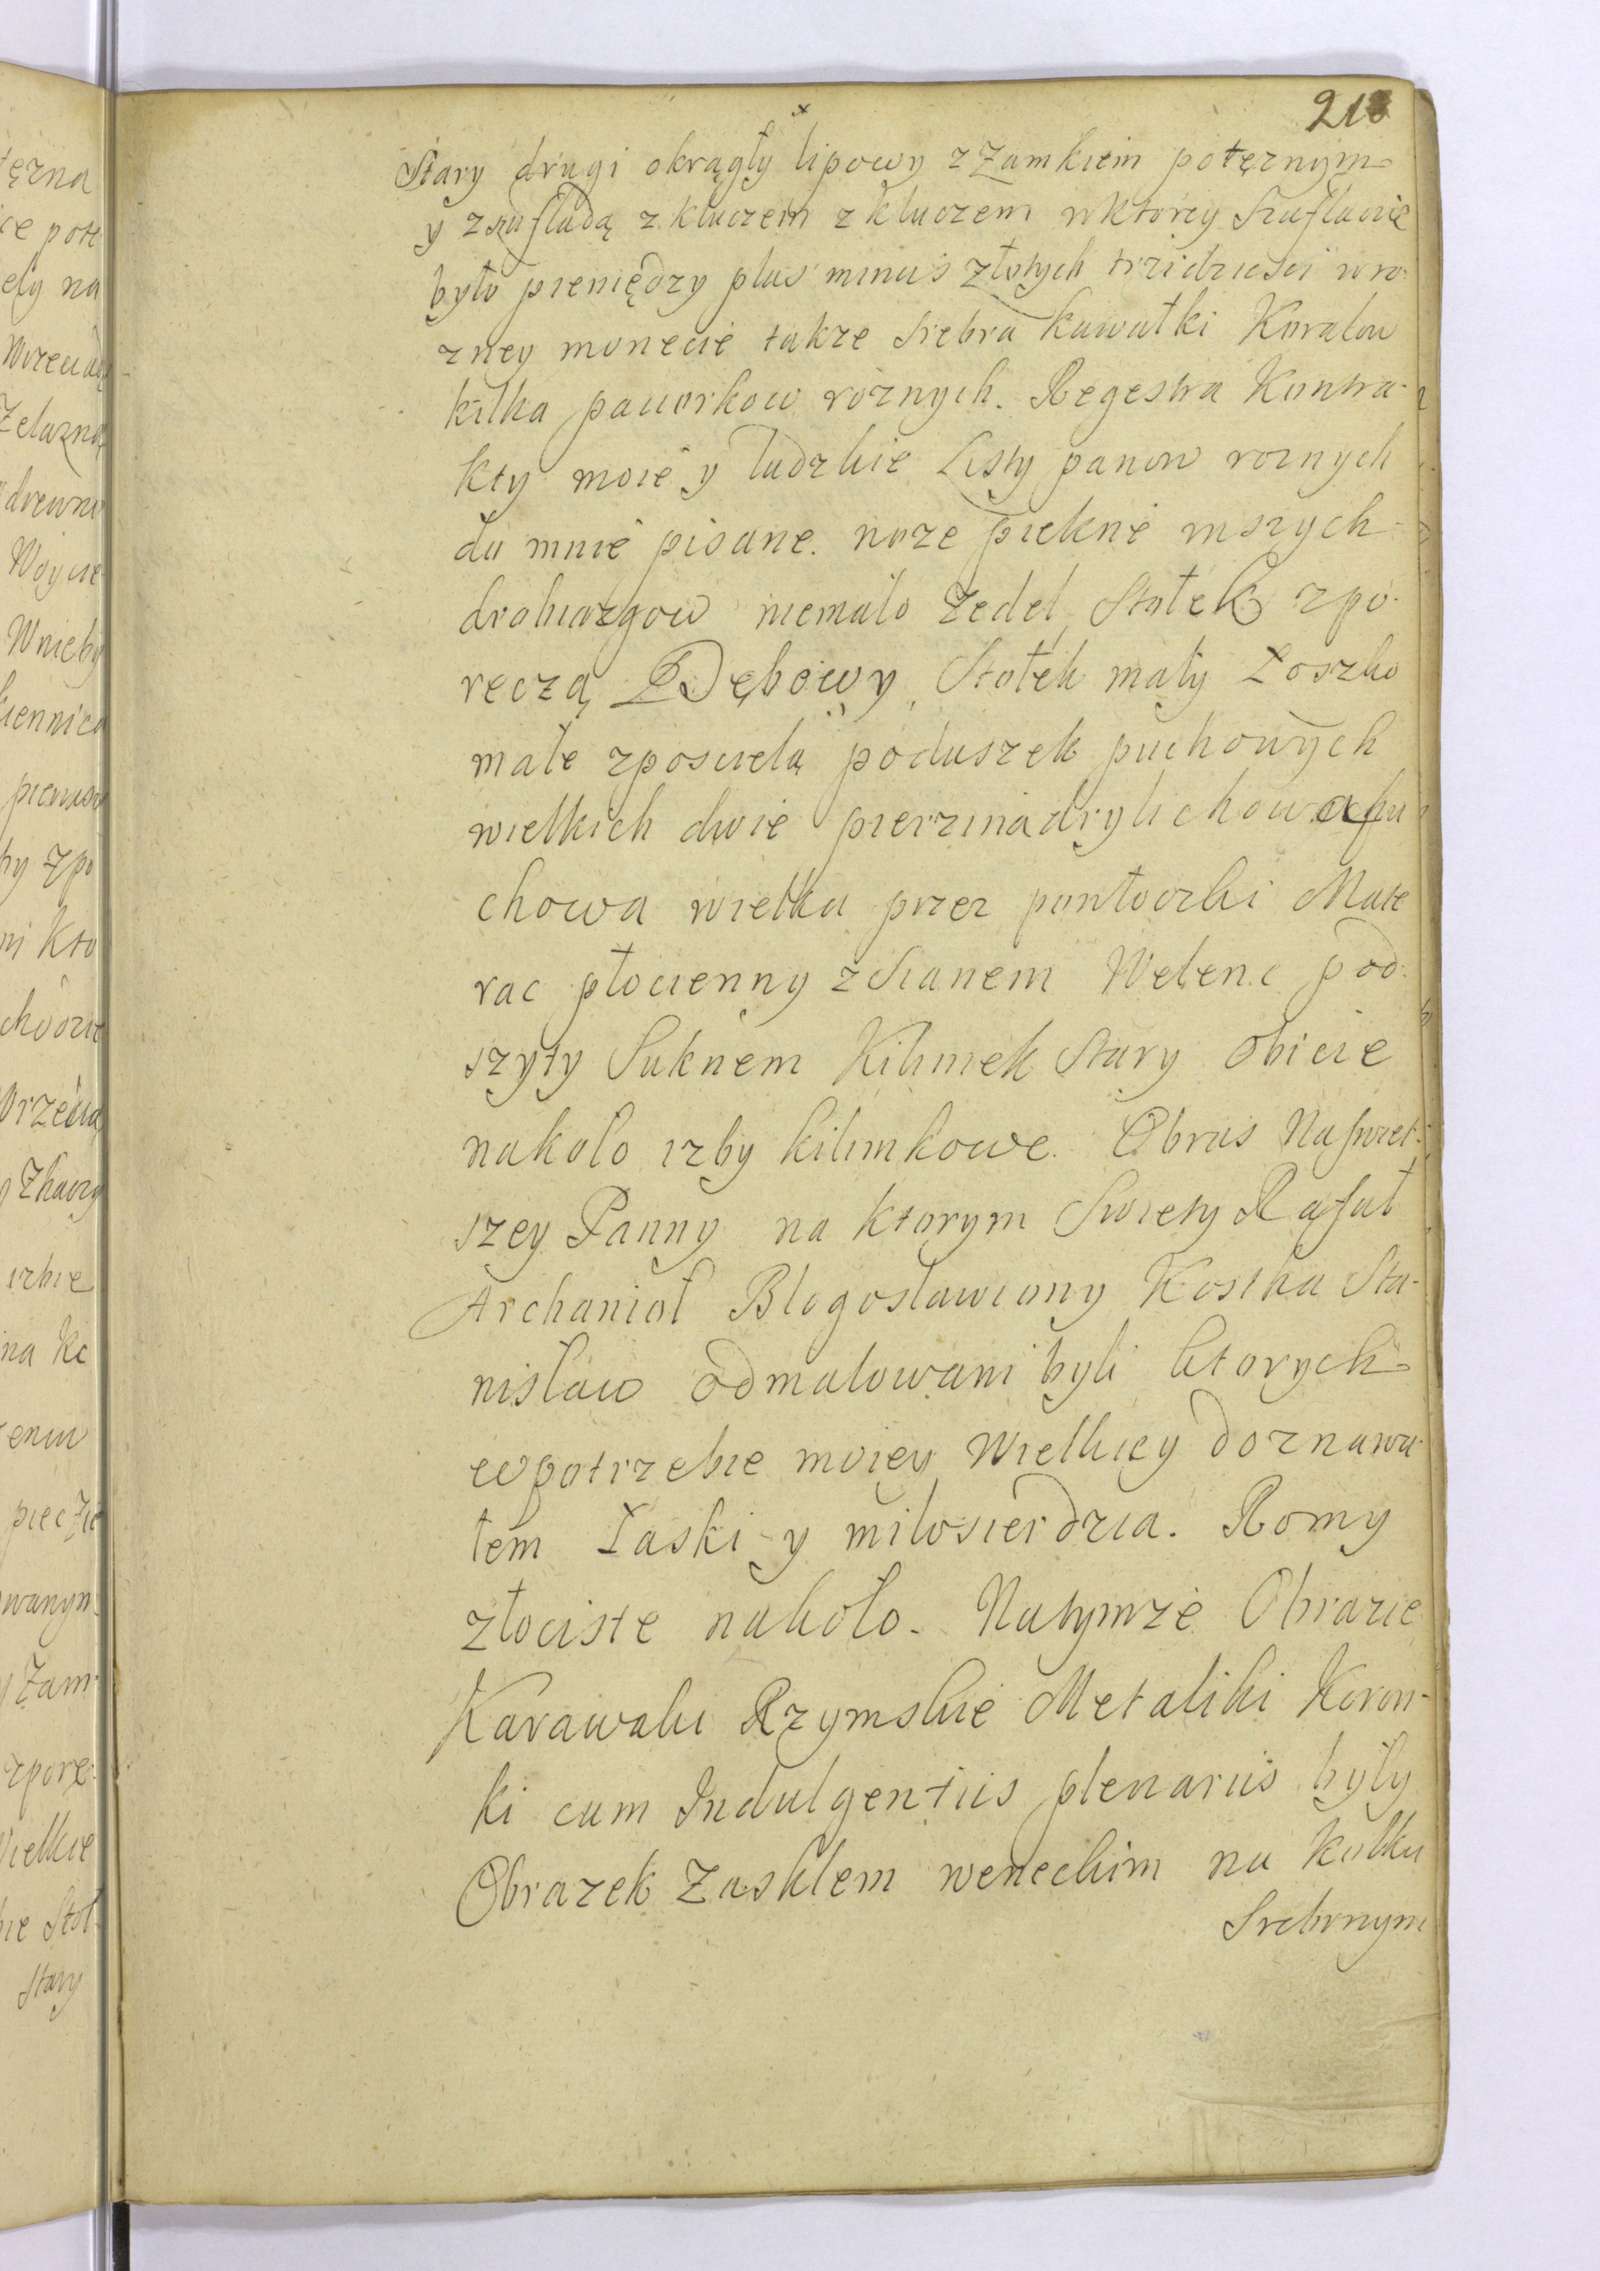 218
Stary drugi okrągły lipowy z Zamkiem potęznym
y z szufladą z kluczem z kluczem w ktorey Szufladzie
było pieniędzy plus minus złotych trzidziesci w ro-
zney monecie takze Srebra kawałki Koralow
kilka paciorkow roznych. Regestra Kontra-
kty moie y ludzkie Listy panow roznych
do mnie pisane. noze piekne inszych
drobiazgow niemało Zedel Stołek z po-
ręczą Dębowy, Stołek mały Łoszko
małe z poscielą poduszek puchowych
wielkich dwie pierzina drylichowa pu
chowa wielka przez pontoczki Mate
rac płocienny z Sianem Welenc pod-
szyty Suknem Kilimek Stary obicie
nakoło izby kilimkowe. Obras Nayswiet-
szey Panny na ktorym Swiety Rafał
Archanioł Błogosławiony Kostka Sta-
nisław odmalowani byli ktorych
w potrzebie moiey Wielkiey doznawa-
łem Łaski y miłosierdzia. Romy
złociste nakoło. Na tymze Obrazie
Karawaki Rzymskie Metaliki Koron-
ki cum Indulgentiis plenariis były
Obrazek Zasklem weneckim na kołku
Srebrnym
tęzna
ce pote
ely na
Wrzeciądz
Zelazną
drewn
Woyce
W nieby
piec
z po
Kto
izbie
na Ke
wanym
Zam-
z porę-
Wielkie
Stoł
Stary